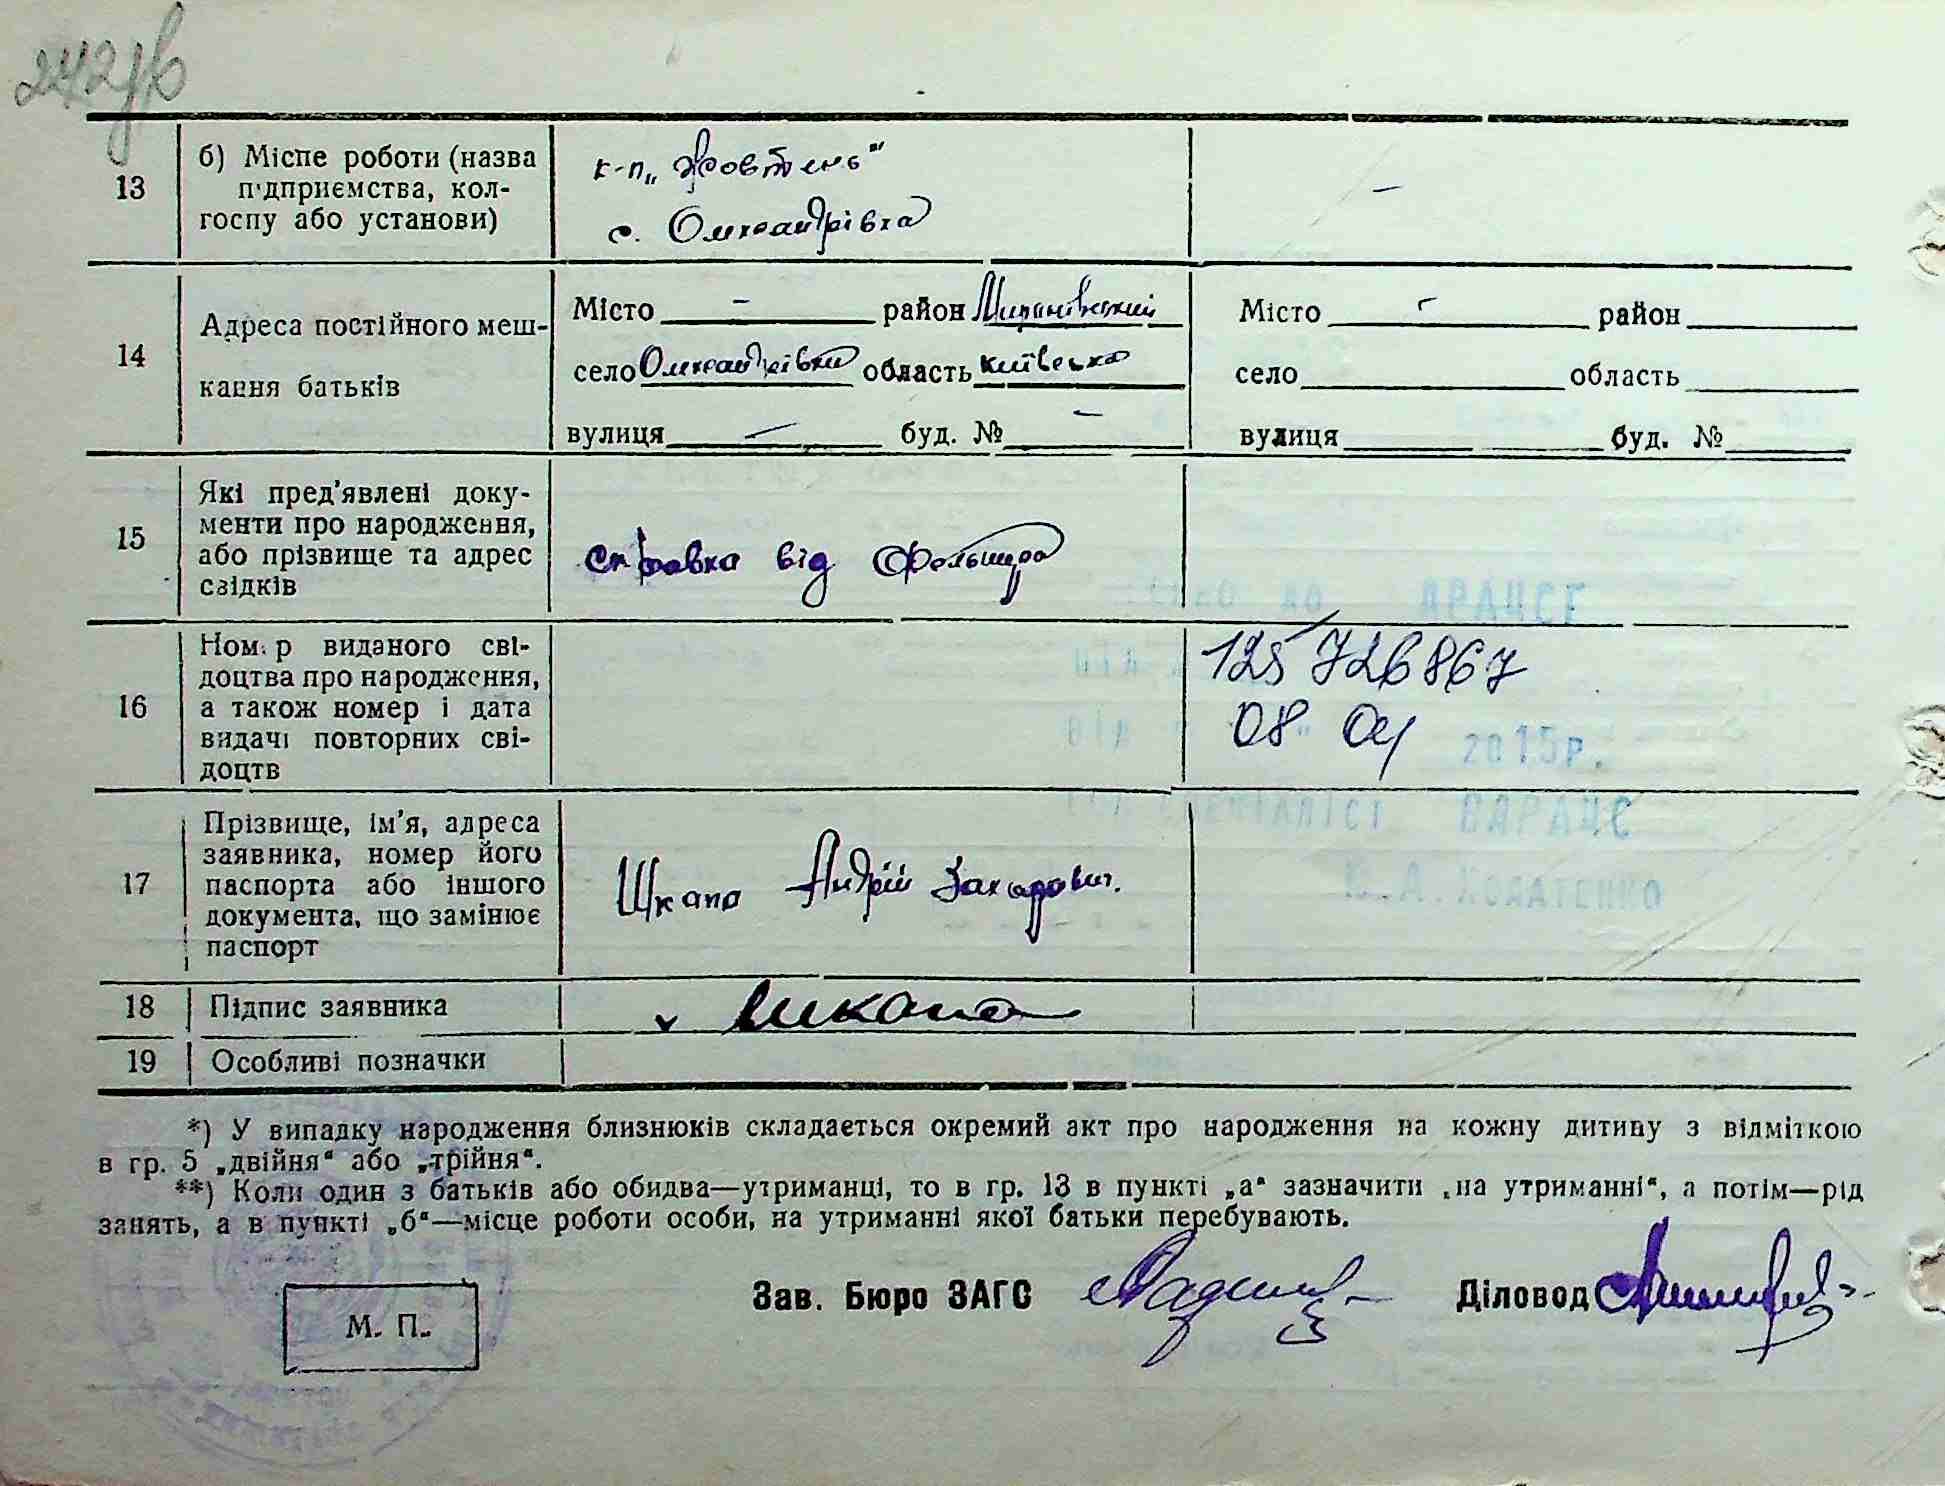 242зв
13
б) Місце роботи (назва
підприємства, кол-
госпу або установи)
к-п „Жовтень"
с. Олександрівка
-
14
Адреса постійного меш-
кання батьків
Місто - район Миронівський
село Олександрівка область київська
вулиця - буд. № -
Місто - район
село область
вулиця буд. №
15
Які пред'явлені доку-
менти про народження,
або прізвище та адрес
свідків
справка від Фельшера
16
Номер виданого сві-
доцтва про народження,
а також номер і дата
видачі повторних сві-
доцтв
125 726867
08 04
2015р.
17
Прізвище, ім'я, адреса
заявника, номер його
паспорта або іншого
документа, що замінює
паспорт
Шкапа Андрій Захарович.
18
Підпис заявника
v Шкапа
19
Особливі позначки
*) У випадку народження близнюків складається окремий акт про народження на кожну дитину з відміткою
в гр. 5 „двійня" або „трійня".
**) Коли один з батьків або обидва—утриманці, то в гр. 13 в пункті „а" зазначити „на утриманні", а потім—рід
занять, а в пункті „б"—місце роботи особи, на утриманні якої батьки перебувають.
М. П.
Зав. Бюро ЗАГС
Діловод